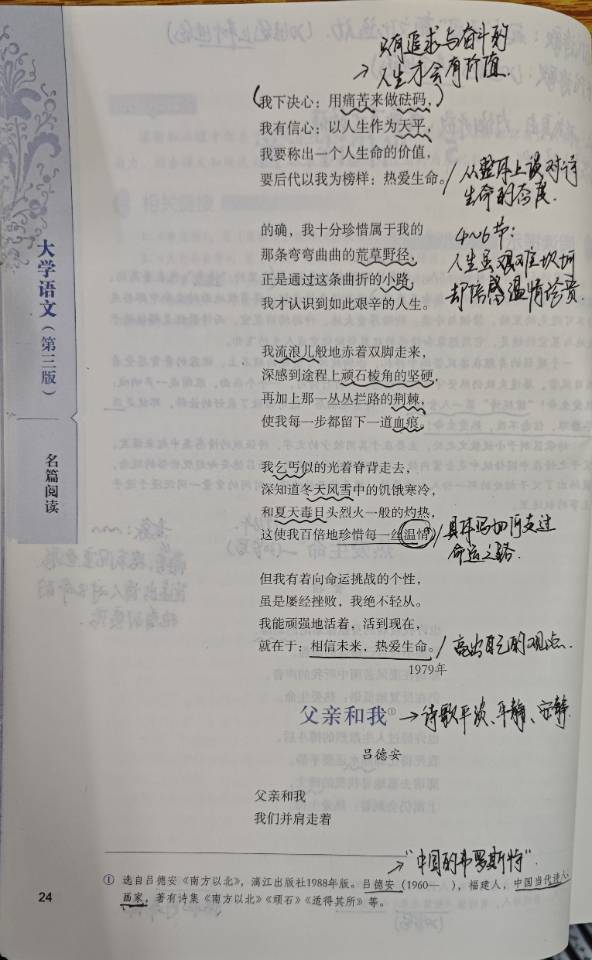 只有追求与奋斗的
→人生才会有价值.
(我下决心：用痛苦来做砝码，)
我有信心：以人生作为天平，
我要称出一个人生命的价值，
要后代以我为榜样：热爱生命。
/从整体上谈对待
生命的态度.
的确，我十分珍惜属于我的
那条弯弯曲曲的荒草野径，
正是通过这条曲折的小路，
我才认识到如此艰辛的人生。
4~6节：
人生虽艰难坎坷
却倍感温情珍贵.
我流浪儿般地赤着双脚走来，
深感到途程上顽石棱角的坚硬，
再加上那一丛丛拦路的荆棘，
使我每一步都留下一道血痕。
我乞丐似的光着脊背走去，
深知道冬天风雪中的饥饿寒冷，
和夏天毒日头烈火一般的灼热，
这使我百倍地珍惜每一丝温情。
/具体写如何走过
命运之路.
但我有着向命运挑战的个性，
虽是屡经挫败，我绝不轻从。
我能顽强地活着，活到现在，
就在于：相信未来，热爱生命。
/亮出自己的观点.
1979年
父亲和我①
→诗歌平淡、平静、安静.
吕德安
父亲和我
我们并肩走着
→"中国的弗罗斯特".
① 选自吕德安《南方以北》，漓江出版社1988年版。吕德安（1960—　），福建人，中国当代诗人、
画家，著有诗集《南方以北》《顽石》《适得其所》等。
24
大学语文（第三版）
名篇阅读